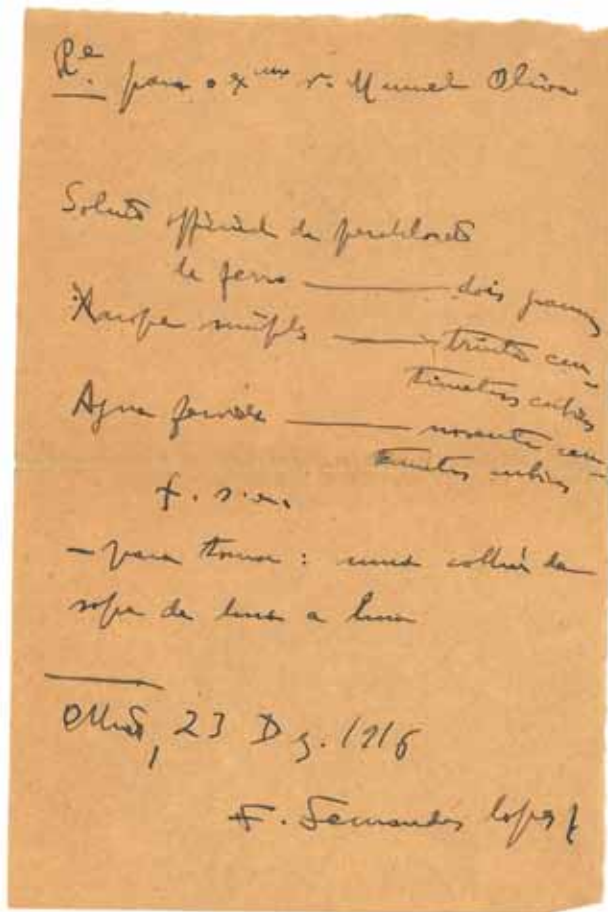 Rᵉ. para o exᵐᵒ sr. Manuel Oliva
Soluto official de perchloreto
de ferro ——— dois gramas
Xarope simples ——— trinta cen-
timetros cubicos
Agua fervida ——— noventa cen-
timetros cubicos
f. s. a.
— para tomar: uma colher de
sopa de hora a hora
Olhão, 23 Dez. 1916
F. Fernandes Lopes